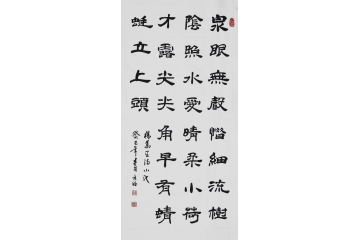 泉眼無聲惜細流樹
陰照水愛晴柔小荷
才露尖尖角早有蜻
蜓立上頭
楊萬里詩小池
癸巳年